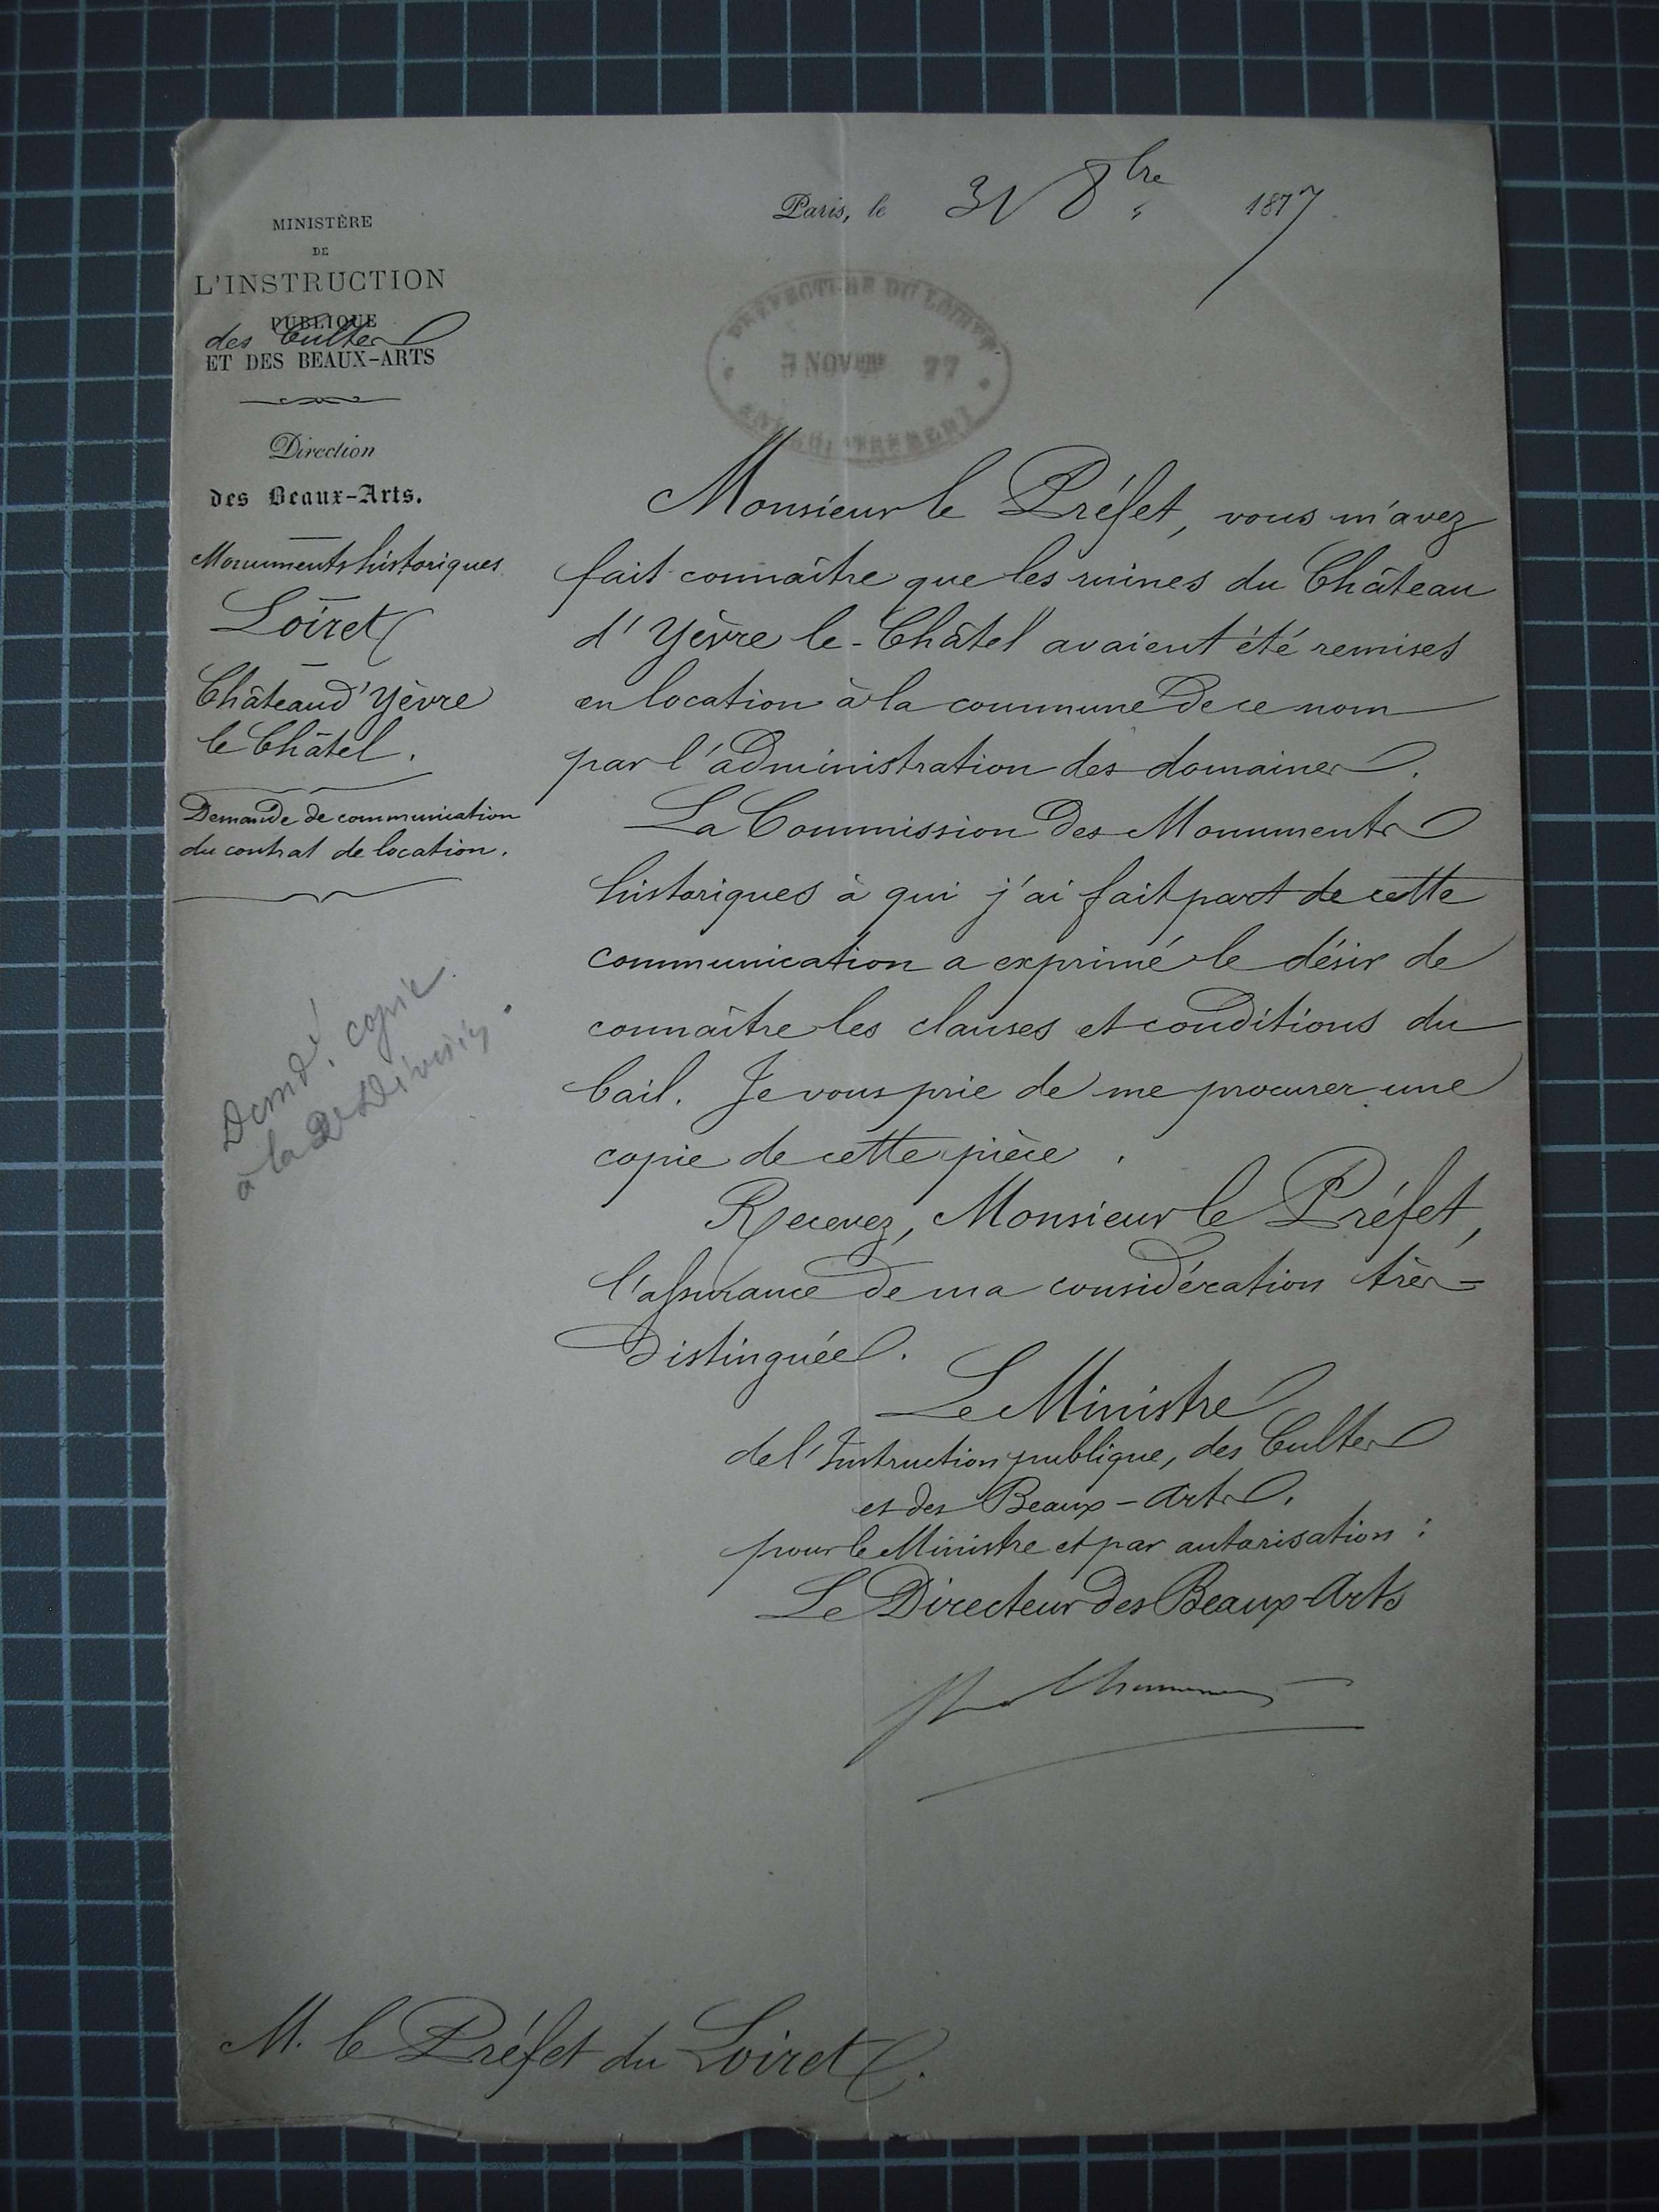 Paris, le 31 8bre 1877
MINISTÈRE
DE
L'INSTRUCTION
PUBLIQUE
des Cultes
ET DES BEAUX-ARTS
Direction
des Beaux-Arts.
Monuments historiques
Loiret
Château d'Yèvre
le Châtel.
Demande de communication
du contrat de location.
Demdé copie
à la 2e Division.
PREFECTURE DU LOIRET
3 NOVBRE 77
ENREGISTREMENT
Monsieur le Préfet, vous m'avez
fait connaître que les ruines du Château
d'Yèvre le-Châtel avaient été remises
en location à la commune de ce nom
par l'administration des domaines.
La Commission des Monuments
historiques à qui j'ai fait part de cette
communication a exprimé le désir de
connaître les clauses et conditions du
bail. Je vous prie de me procurer une
copie de cette pièce.
Recevez, Monsieur le Préfet,
l'assurance de ma considération très-
distinguée.
Le Ministre
de l'Instruction publique, des Cultes
et des Beaux-Arts.
pour le Ministre et par autorisation :
Le Directeur des Beaux-Arts
M. le Préfet du Loiret.